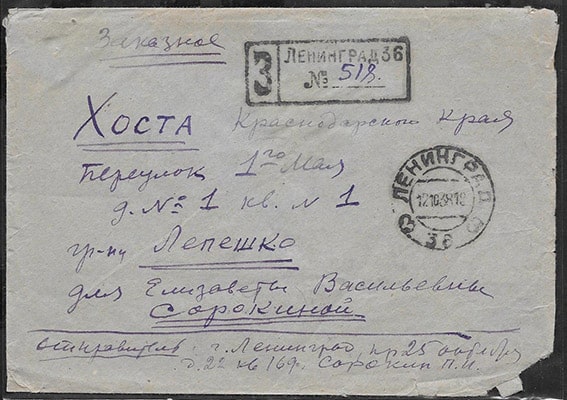 Заказное
З ЛЕНИНГРАД 36
№ 518.
Хоста Краснодарского Края
Переулок 1го Мая
д. № 1 кв. № 1
гр-ну Лепешко
для Елизаветы Васильевны
Сорокиной
ЛЕНИНГРАД
12.10.38.19
36
отправитель г. Ленинград, пр 25 октября
д. 22 кв 169. Сорокин П.И.